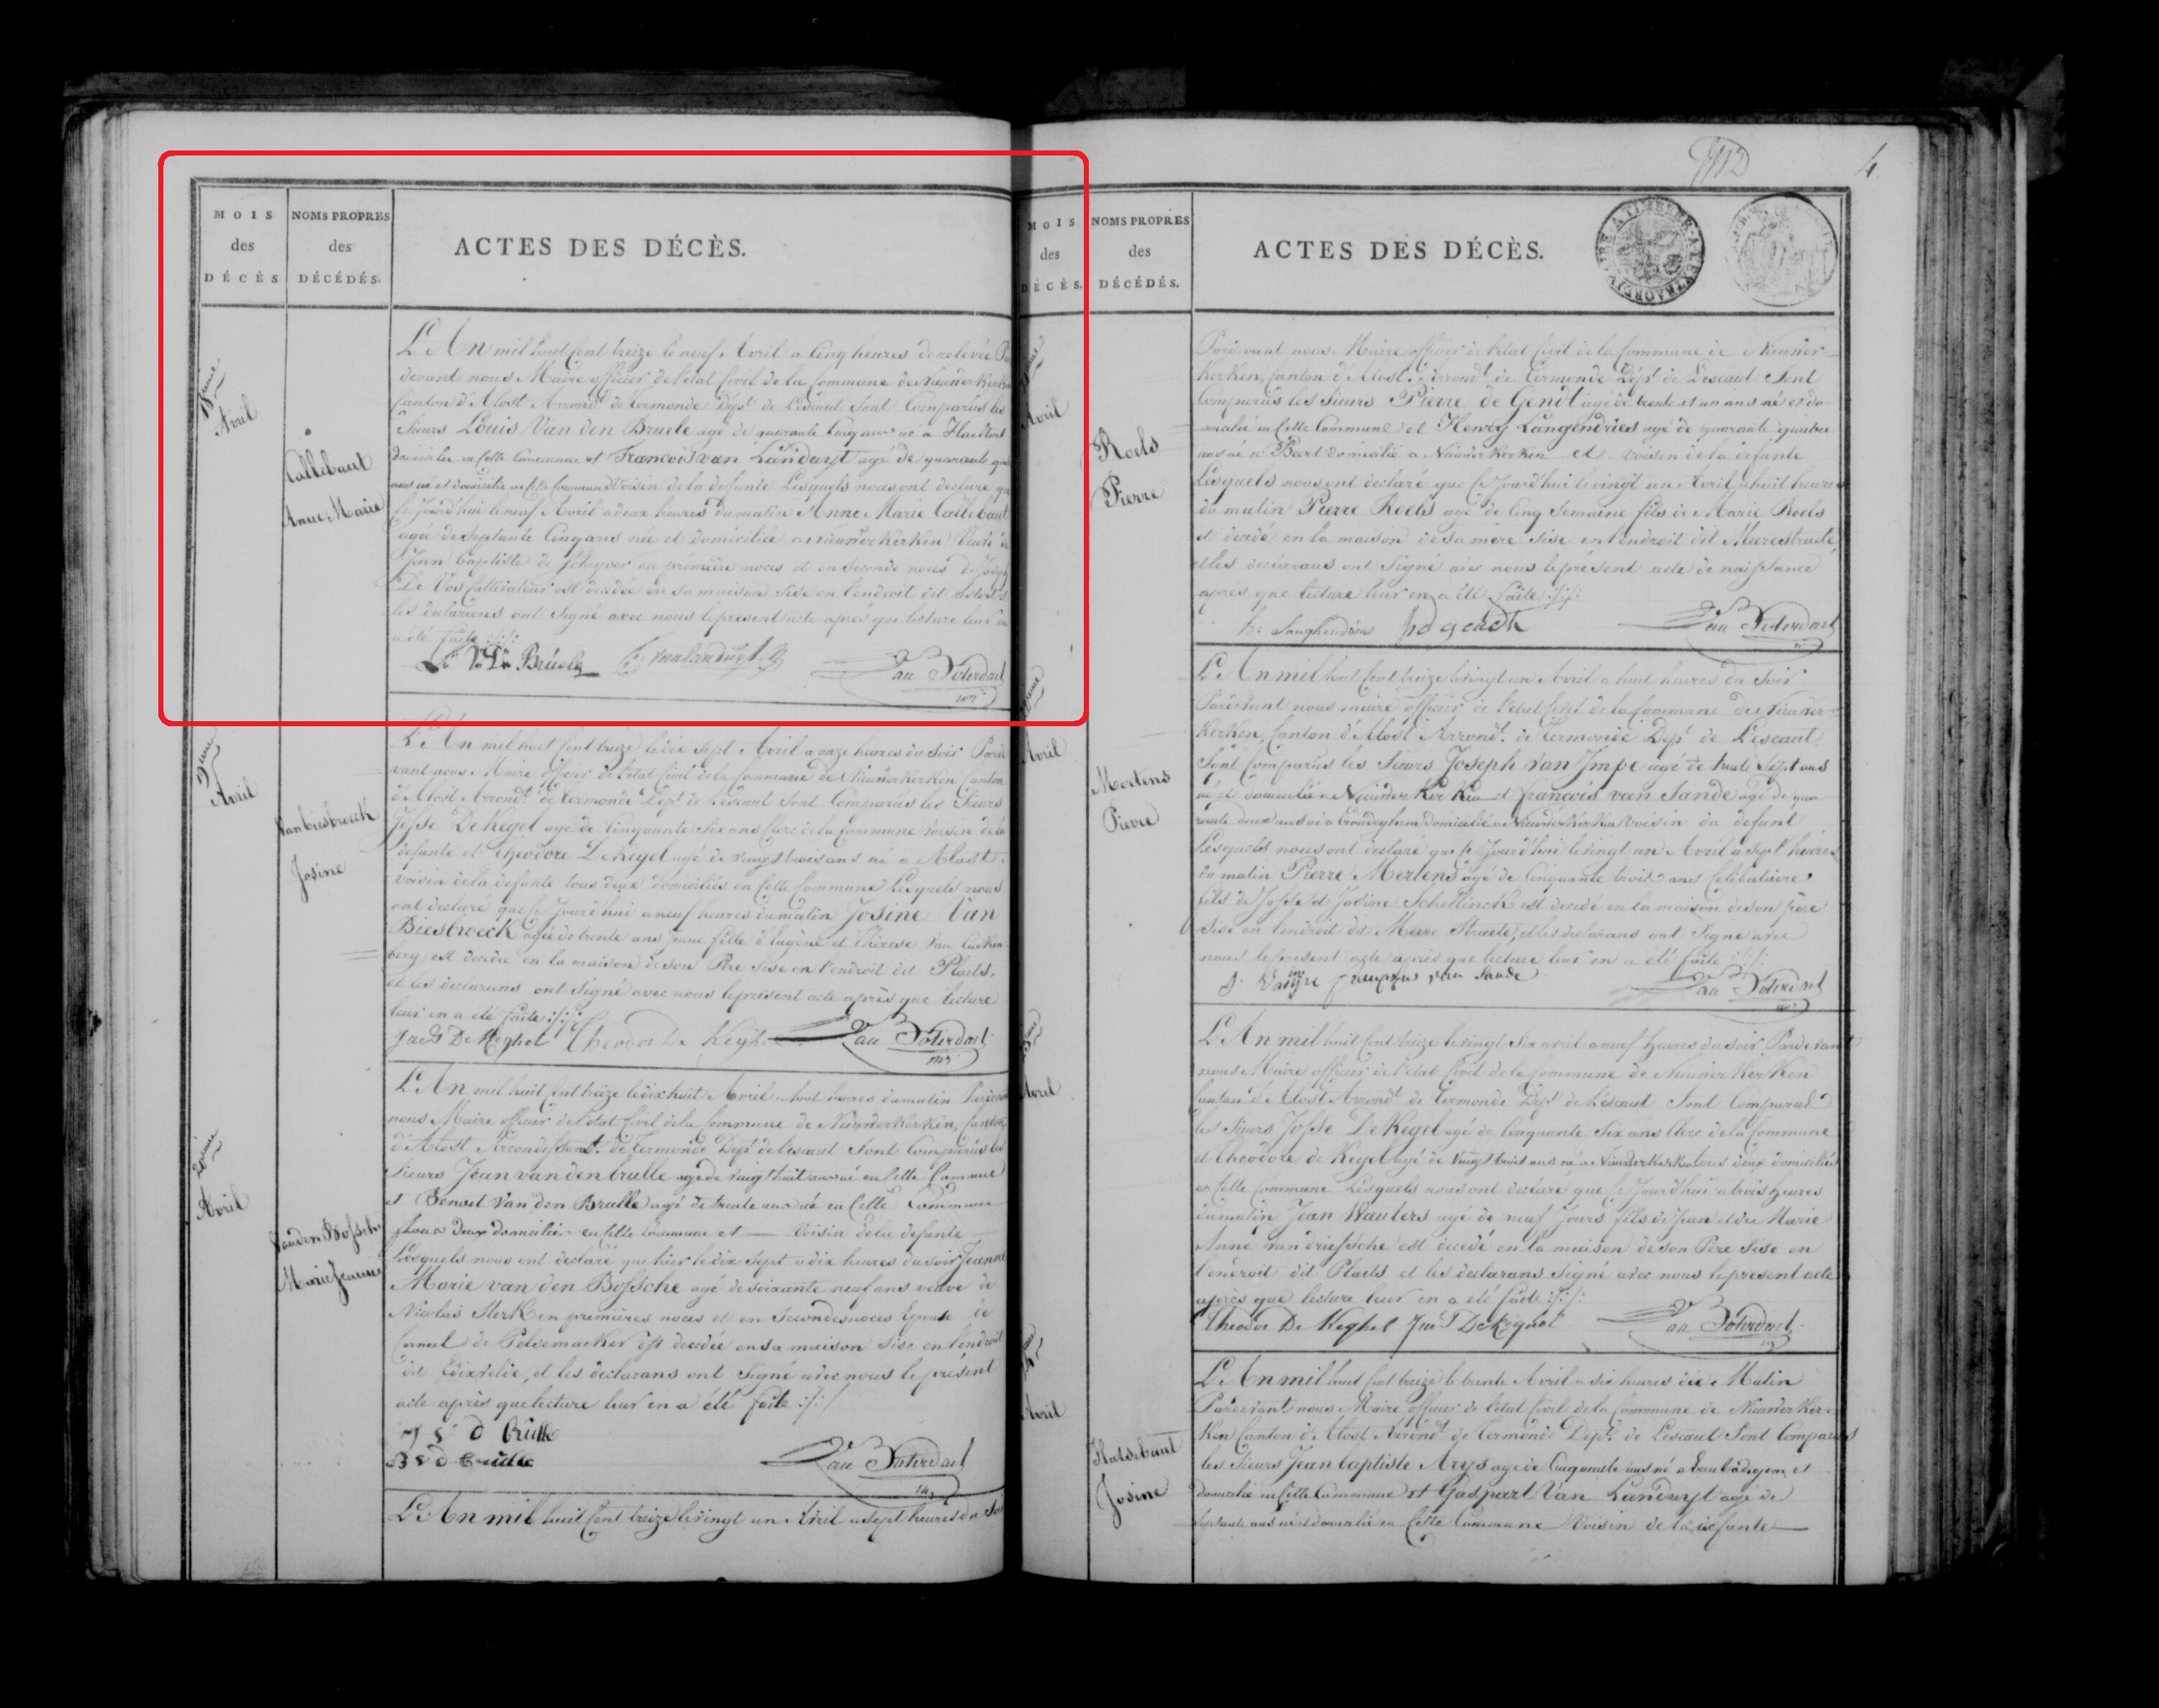 112
4
MOIS des DÉCÈS
NOMS PROPRES des DÉCÉDÉS.
ACTES DES DÉCÈS.
18eme Avril
Callebaut Anne Marie
L'An mil huit Cent treize le neuf Avril a Cinq heures de relevée Par
devant nous Maire officier de l'etat Civil de la Commune de Nieuwerkerken
Canton d'Alost Arrondt de termonde Dépt de L'escaut Sont Comparus les
Sieurs Louis Van den Bruele agé de quarante Cinq ans né a Haeltert
domicilié en Cette Commune et Francois van Landuyt agé de quarante
ans né et domicilié en Cette Commune Voisin de la defunte Lesquels nous ont declaré que
Ce Jourd'hui le neuf Avril a deux heures du matin Anne Marie Callebaut
agée de Septante Cinq ans née et domiciliée a Nieuwerkerken Veuve de
Jean baptiste de Schryver en première noces et en Seconde noces de Joseph
De Vos Cultivateur est decedée en sa maison Sise en l'endroit dit
les declarans ont Signé avec nous le present acte après que lecture leur en
a été faite
L. V. D. Bruele F. vanlanduyt
19eme Avril
Van Biesbroeck Josine
L'An mil huit Cent treize le dix Sept Avril a onze heures du Soir Parde
vant nous Maire officier de l'etat Civil de la Commune de Nieuwerkerken Canton
d'Alost Arrondt de termonde Dépt de L'escaut Sont Comparus les Sieurs
Josse De Kegel agé de Cinquante Six ans Clerc de la Commune Voisin de la
defunte et Theodore De Kegel agé de vingt trois ans né a Alost
voisin de la defunte tous deux domiciliés en Cette Commune Lesquels nous
ont declaré que Ce Jourd'hui a neuf heures du matin Josine Van
Biesbroeck agée de trente ans jeune fille d'Eugène et Thérese Van
berg est decedée en la maison de son Père Sise en l'endroit dit Plaets,
et les declarans ont Signé avec nous le present acte après que lecture
leur en a été faite
Theodor De Keghel
20eme Avril
Van den Bossche Marie Jeanne
L'An mil huit Cent treize le dix huit Avril a huit heures du matin Pardevant
nous Maire officier de l'etat Civil de la Commune de Nieuwerkerken, Canton
d'Alost Arrondissemt de Termonde Dépt de l'escaut Sont Comparus les
Sieurs Jean van den brulle agé de vingt huit ans né en Cette Commune
et Benoit Van den Brulle agé de trente ans né en Cette Commune
tous Deux domicilié en Cette Commune et Voisin de la defunte
Lesquels nous ont declaré que hier le dix Sept a dix heures du soir Jeanne
Marie van den Bossche agé de soixante neuf ans veuve de
Nicolas Sterk en premières noces et en secondes noces Epouse de
Corneil de Pelsemaeker est decedée en sa maison Sise en l'endroit
dit et les declarans ont Signé avec nous le présent
acte après que lecture leur en a été faite
L'An mil huit Cent treize le vingt un Avril a sept heures du Soir
MOIS des DÉCÈS.
NOMS PROPRES des DÉCÉDÉS.
ACTES DES DÉCÈS.
Avril
Roels Pierre
Pardevant nous Maire officier de l'etat Civil de la Commune de Nieuwer-
kerken, Canton d'Alost, Arrondt de Termonde Dépt de L'escaut Sont
Comparus les Sieurs Pierre de Gendt agé de trente et un ans né et do-
micilié en Cette Commune et Henry Langendries agé de quarante quatre
ans né a domicilié a Nieuwerkerken et voisin de la defunte
Lesquels nous ont declaré que Ce Jourd'hui le vingt un Avril a huit heures
du matin Pierre Roels agé de Cinq Semaine fils de Marie Roels
est decedé en la maison de sa mère Sise en l'endroit dit Meerestraete
et les declarans ont Signé avec nous le présent acte de naissance
après que lecture leur en a été faite
Avril
Mertens Pierre
L'An mil huit Cent treize le vingt un Avril a huit heures du Soir
Pardevant nous maire officier de l'etat Civil de la Commune de Nieuwer-
kerken Canton d'Alost Arrondt de Termonde Dépt de L'escaut
Sont Comparus les Sieurs Joseph Van Impe agé de trente Sept ans
né et domicilié a Nieuwerkerken et francois van Sande agé de qua-
rante deux ans né a domicilié a Nieuwerkerken voisin du defunt
Lesquels nous ont declaré que Ce Jourd'hui le vingt un Avril a Sept heures
du matin Pierre Mertens agé de Cinquante trois ans Celibataire,
fils de Josse et Josine Schellinck est decedé en la maison de son père
Sise en l'endroit dit Meere Straete, et les declarans ont Signé avec
nous le present acte après que lecture leur en a été faite
Avril
L'An mil huit Cent treize le vingt Six avril a neuf heures du soir Pardevant
nous Maire officier de l'etat Civil de la Commune de Nieuwerkerken
Canton d'Alost Arrondt de Termonde Dépt de L'escaut Sont Comparus
les Sieurs Josse De Kegel agé de Cinquante Six ans Clerc de la Commune
et Theodore de Kegel agé de vingt trois ans né a Nieuwerkerken tous deux domiciliés
en Cette Commune Lesquels nous ont declaré que Ce Jourd'hui a trois heures
du matin Jean Wauters agé de neuf Jours fils de Jean et de Marie
Anne Van driessche est decedé en la maison de son Père Sise en
l'endroit dit Plaets et les declarans Signé avec nous le present acte
après que lecture leur en a été faite
Theodor De Keghel
Avril
Hulsebaut Josine
L'An mil huit Cent treize le trente Avril a six heures du Matin
Pardevant nous Maire officier de l'etat Civil de la Commune de Nieuwerker-
ken Canton d'Alost Arrondt de Termonde Dépt de L'escaut Sont Comparus
les Sieurs Jean baptiste Arys agé de Cinquante ans né a et
domicilié en Cette Commune et Gaspart Van Landuyt agé de
ans né et domicilié en Cette Commune Voisin de la defunte